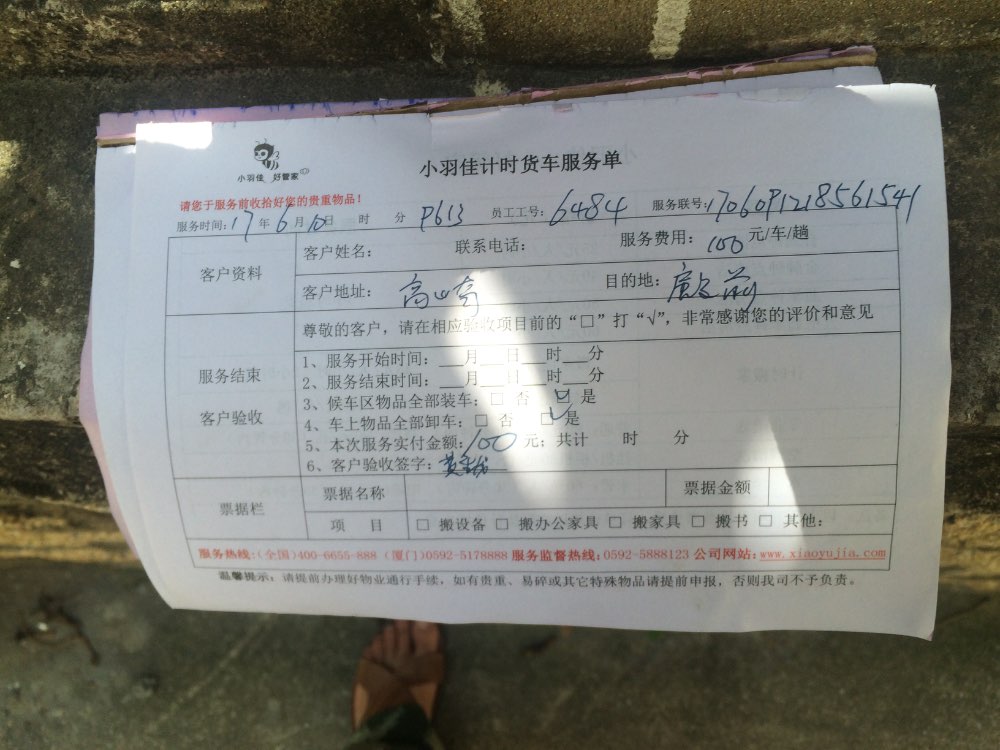 小羽佳 好管家
小羽佳计时货车服务单
请您于服务前收拾好您的贵重物品！
服务时间：17年6月10日 时 分 P613 员工工号：6484 服务联号：1706091218561541
客户资料
客户姓名： 联系电话： 服务费用：100元/车/趟
客户地址：高崎 目的地：殿前
服务结束
客户验收
尊敬的客户，请在相应验收项目前的“□”打“√”，非常感谢您的评价和意见
1、服务开始时间：___月___日___时___分
2、服务结束时间：___月___日___时___分
3、候车区物品全部装车：□ 否 ☑ 是
4、车上物品全部卸车：□ 否 ☑ 是
5、本次服务实付金额：100元；共计 时 分
6、客户验收签字：
票据栏
票据名称 票据金额
项 目 □ 搬设备 □ 搬办公家具 □ 搬家具 □ 搬书 □ 其他：
服务热线：(全国)400-6655-888 (厦门)0592-5178888 服务监督热线：0592-5888123 公司网站：www.xiaoyujia.com
温馨提示：请提前办理好物业通行手续，如有贵重、易碎或其它特殊物品请提前申报，否则我司不予负责。